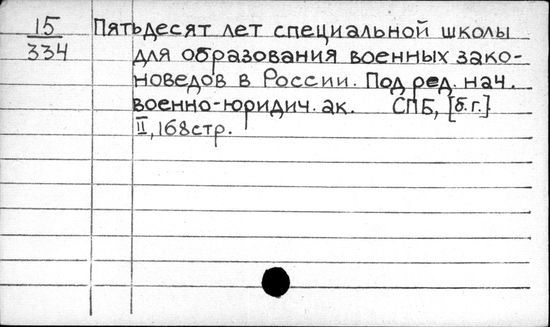 15
334
Пятьдесят лет специальной школы
для образования военных зако-
новедов в России. Под ред. нач.
военно-юридич. ак. СПБ, [б.г.]
II, 168стр.